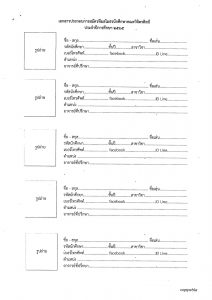 เอกสารประกอบการสมัครรับสโมสรนักศึกษาคณะทรัพยศิลป์
ประจำปีการศึกษา ๒๕๖๔
รูปถ่าย
ชื่อ - สกุล ชื่อเล่น
รหัสนักศึกษา ชั้นปี สาขาวิชา
เบอร์โทรศัพท์ facebook ID Line
ตำแหน่ง
อาจารย์ที่ปรึกษา
รูปถ่าย
ชื่อ - สกุล ชื่อเล่น
รหัสนักศึกษา ชั้นปี สาขาวิชา
เบอร์โทรศัพท์ facebook ID Line
ตำแหน่ง
อาจารย์ที่ปรึกษา
รูปถ่าย
ชื่อ - สกุล ชื่อเล่น
รหัสนักศึกษา ชั้นปี สาขาวิชา
เบอร์โทรศัพท์ facebook ID Line
ตำแหน่ง
อาจารย์ที่ปรึกษา
รูปถ่าย
ชื่อ - สกุล ชื่อเล่น
รหัสนักศึกษา ชั้นปี สาขาวิชา
เบอร์โทรศัพท์ facebook ID Line
ตำแหน่ง
อาจารย์ที่ปรึกษา
รูปถ่าย
ชื่อ - สกุล ชื่อเล่น
รหัสนักศึกษา ชั้นปี สาขาวิชา
เบอร์โทรศัพท์ facebook ID Line
ตำแหน่ง
อาจารย์ที่ปรึกษา